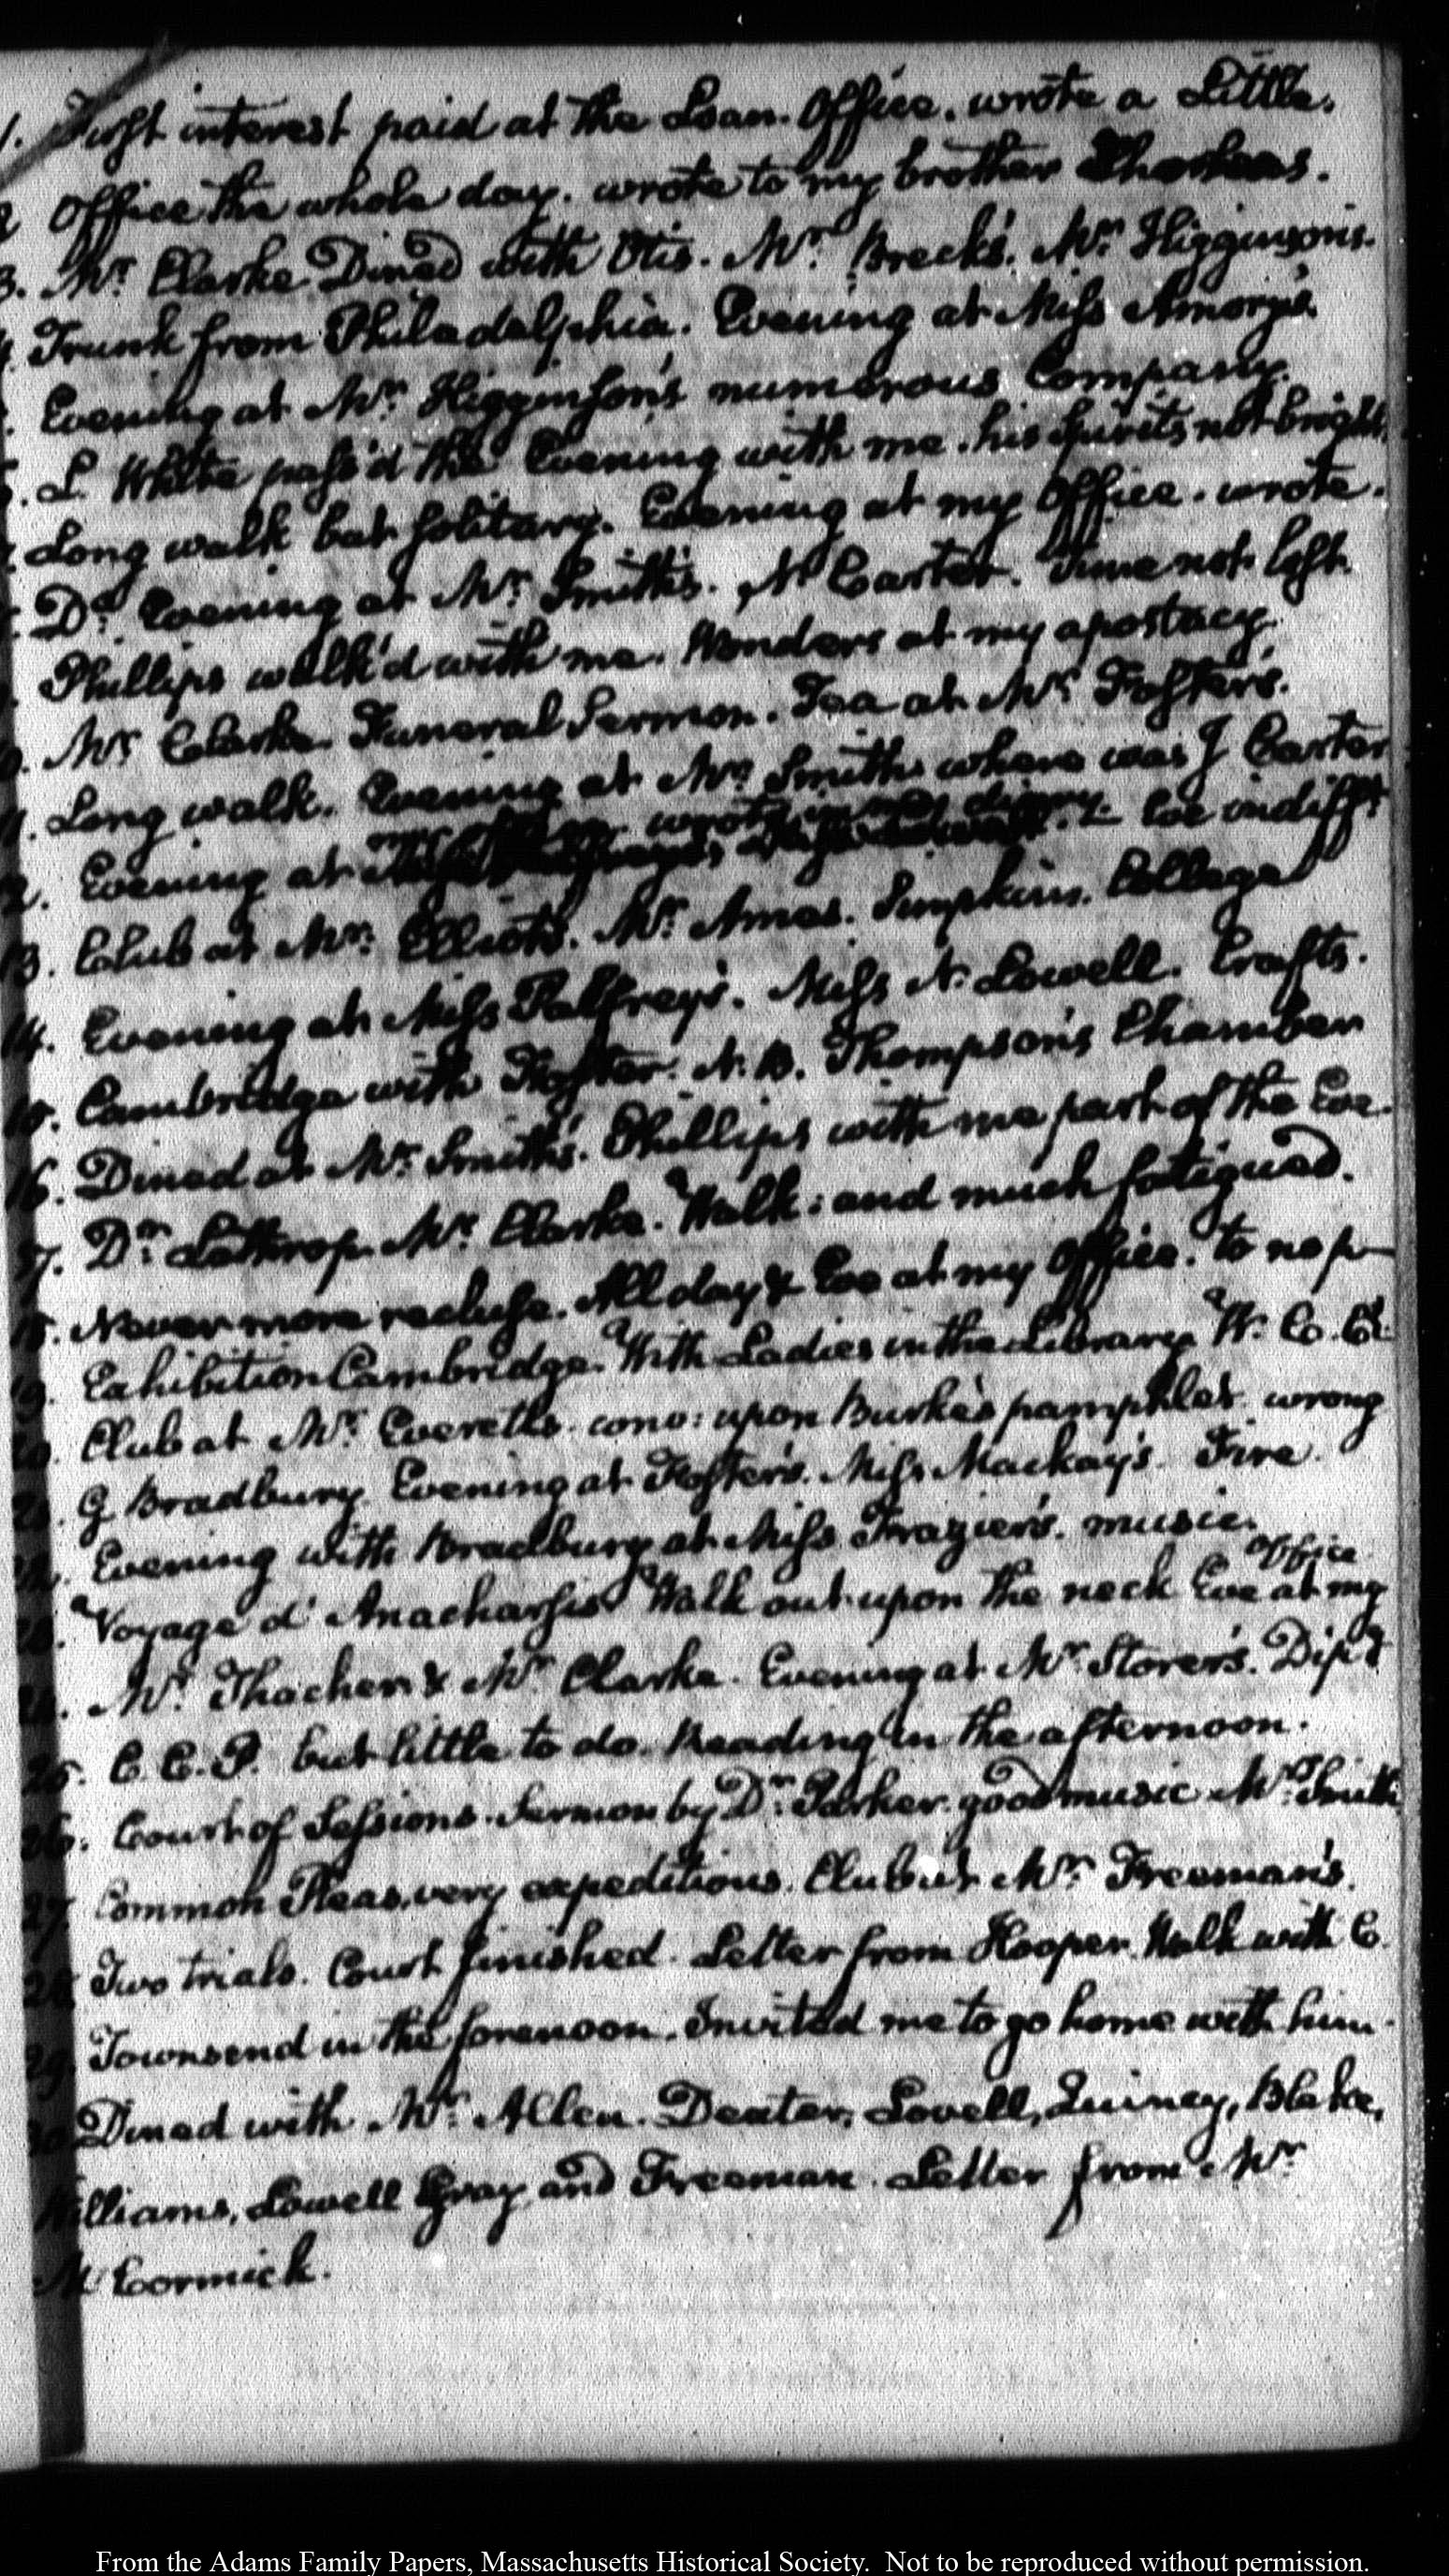 1. First interest paid at the Loan. Office. wrote a Little.
2 Office the whole day. wrote to my brother
3. Mr. Clarke Dined with Otis. Mr. Breck's. Mr. Higginson's.
4. Trunk from Philadelphia. Evening at Miss Amory's.
Evening at Mr. Higginson's numerous Company.
L. White pass'd the Evening with me. his spirits not bright.
Long walk but solitary. Evening at my Office. wrote.
Do. Evening at Mr. Smith's. N Carter. time not lost.
Phillips walk'd with me. Wonders at my apostacy.
Mr. Clarke. Funeral Sermon. Tea at Mr. Foster's.
1. Long walk. Evening at Mr. Smith's where was J Carter
2. Evening at my office wrote in my diary. Eve indifft
13. Club at Mr. Elliot's. Mr. Ames. Simpkins. College
14. Evening at Miss Palfrey's. Miss N. Lowell. Crafts.
15. Cambridge with Foster. N. B. Thompson's Chamber
16. Dined at Mr. Smith's. Phillips with me part of the Eve.
17. Dr. Lathrop Mr. Clarke. Walk: and much fatigued.
18. Never more recluse. All day & Eve at my Office. to no p—
19. Exhibition Cambridge. With Ladies in the Library W. Co. Cd.
20. Club at Mr. Everett's. conv: upon Burke's pamphlet wrong
21. G Bradbury. Evening at Foster's. Miss Mackay's Fire.
22. Evening with Bradbury at Miss Frazier's. music.
23. Voyage d' Anacharsis Walk out upon the neck Eve at my Office
24. Mr. Thacher & Mr. Clarke. Evening at Mr. Storer's. Dispd
25. C. C. P. but little to do. Reading in the afternoon.
26. Court of Sessions. Sermon by Dr. Parker. good music Mr. Smith
27. Common Pleas, very expeditious. Club at Mr. Freeman's.
28. Two trials. Court finished. Letter from Hooper. Walk with C.
29. Townsend in the forenoon. Invited me to go home with him.
30 Dined with Mr. Allen. Dexter, Lovell, Quincy, Blake,
Williams, Lowell Gray and Freeman. Letter from Mr.
McCormick.
From the Adams Family Papers, Massachusetts Historical Society. Not to be reproduced without permission.